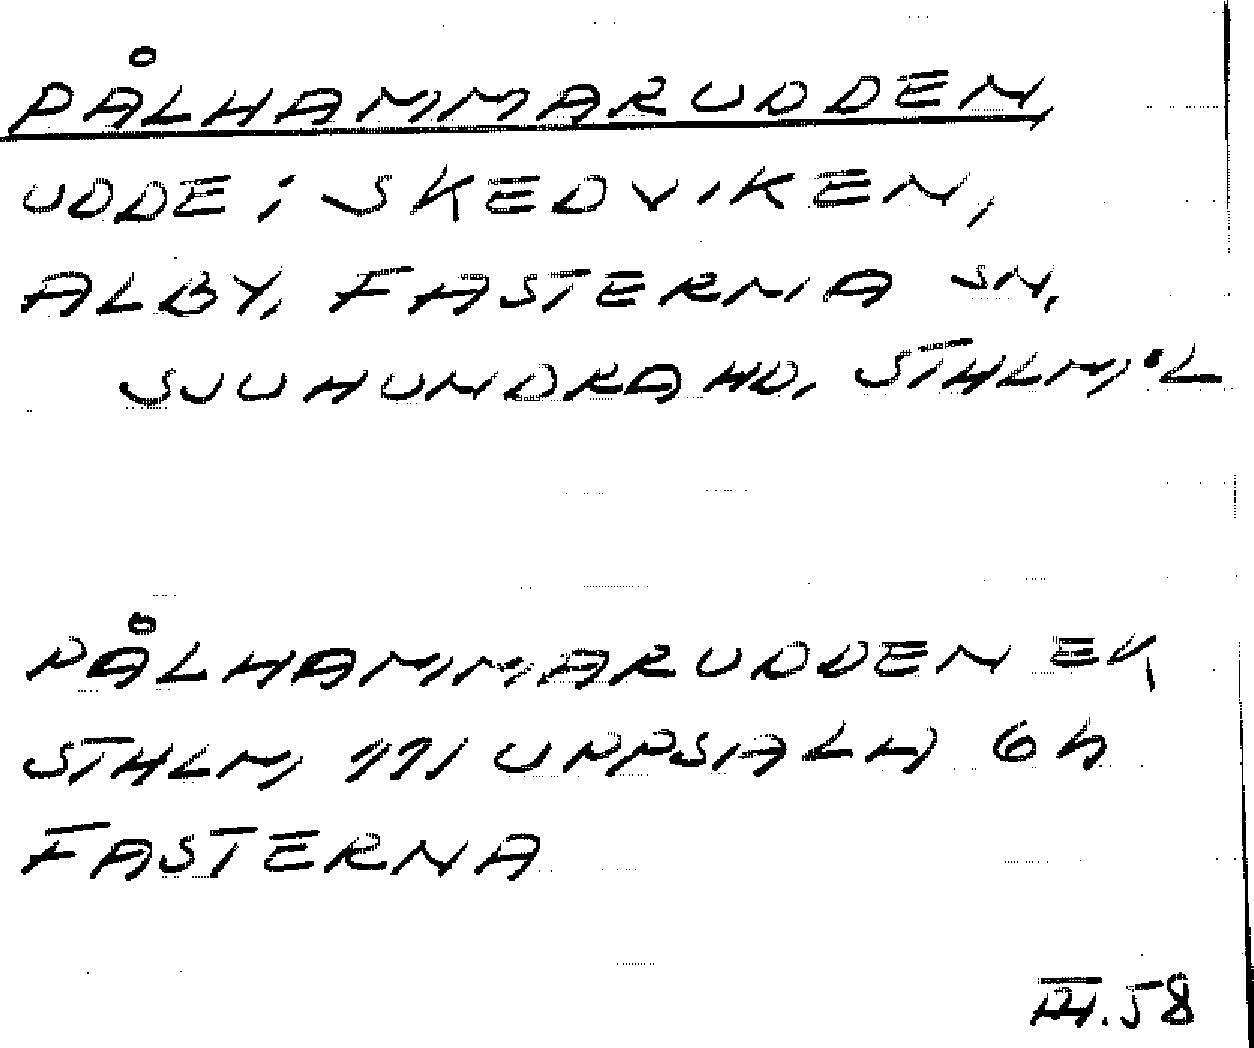 PÅLHAMMARUDDEN,
UDDE i SKEDVIKEN,
ALBY, FASTERNA SN,
SJUHUNDRA HD, STHLM,S L
PÅLHAMMARUDDEN EK
STHLM, 111 UPPSALA 6 h
FASTERNA
III.58